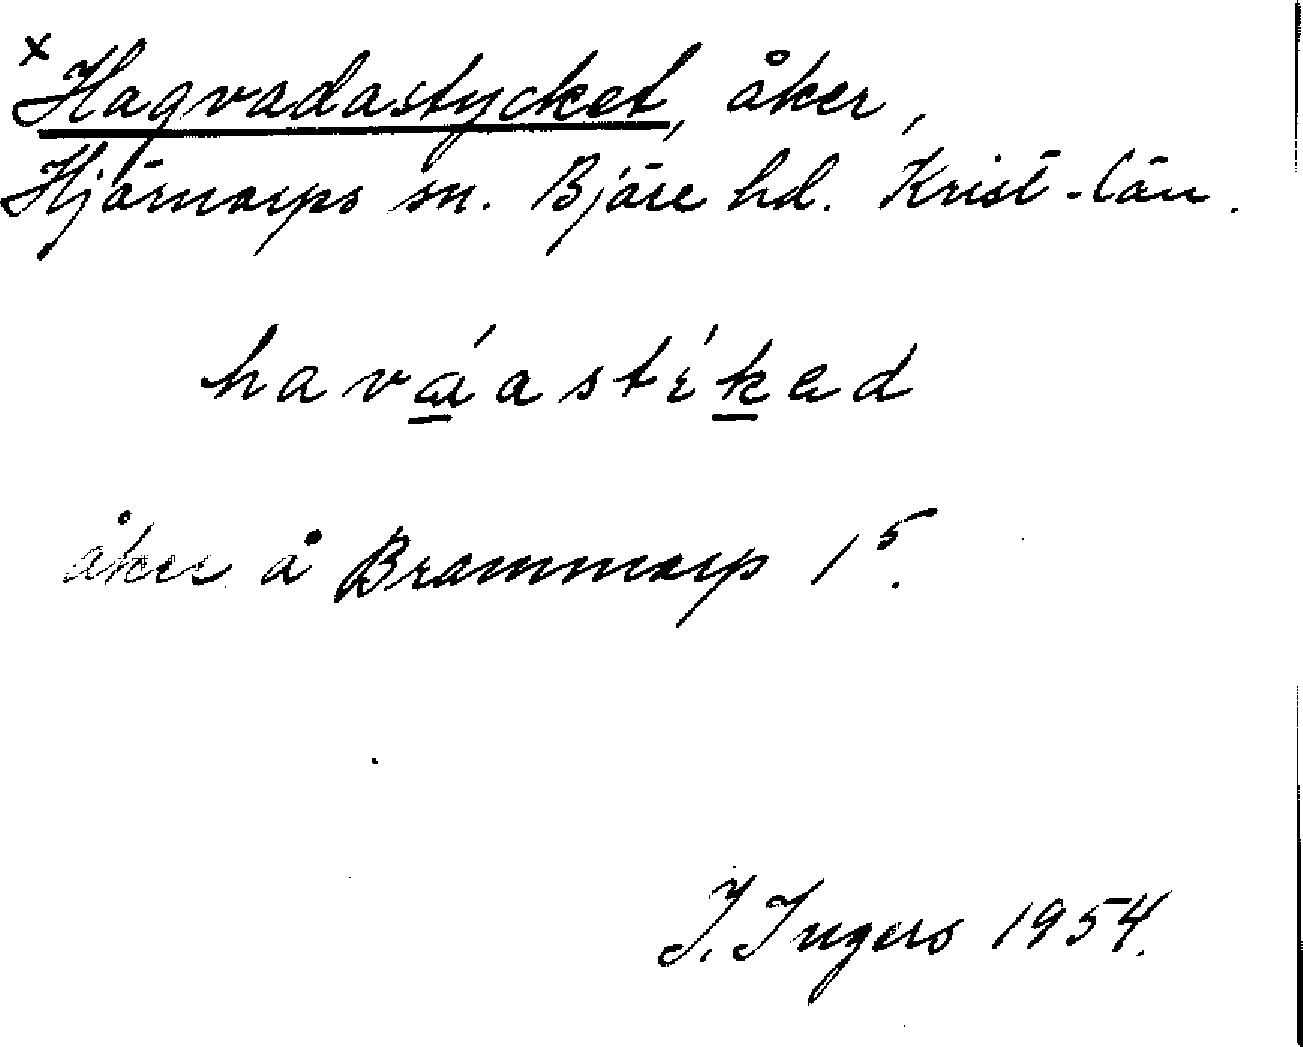 x Hagvadastycket, åker,
Hjärnarps sn. Bjäre hd. Krist-län.
haváastíked
åker å Brammarp 1⁵.
I. Ingers 1954.